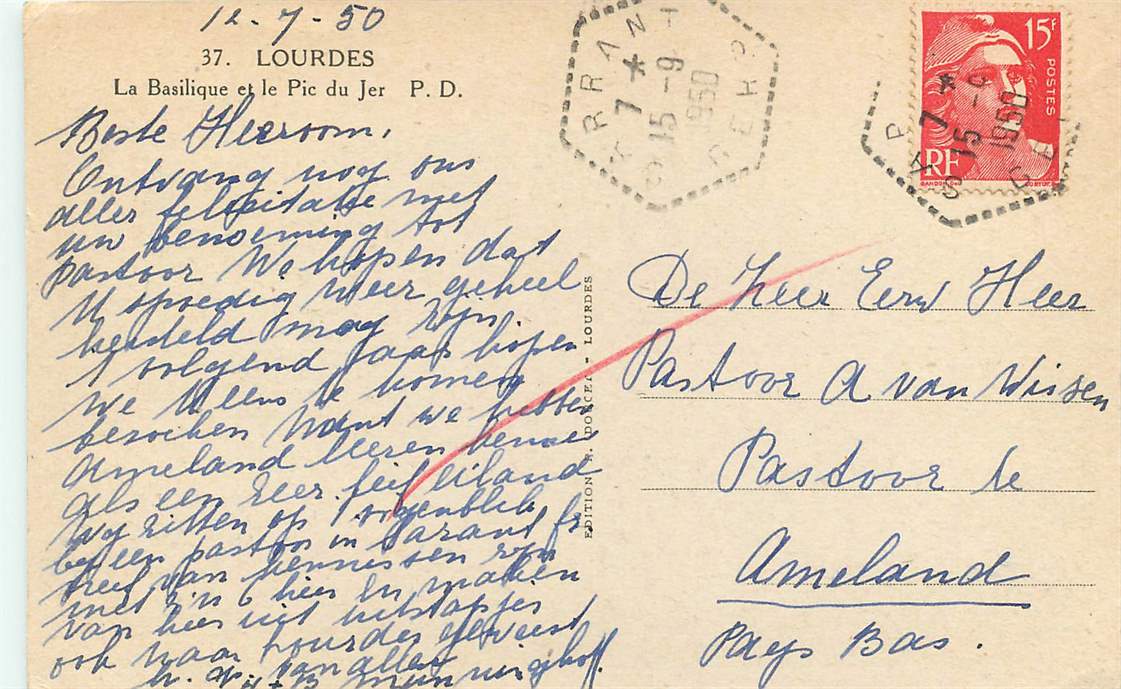 12-7-50
37. LOURDES
La Basilique et le Pic du Jer P. D.
Beste Heeroom,
Ontvang nog ons
aller felicitatie met
uw benoeming tot
pastoor We hopen dat
U spoedig weer geheel
hersteld mag zijn
volgend jaar hopen
we U eens te komen
bezoeken want we hebben
Ameland leeren kennen
als een zeer fijn eiland
Wy zitten op 't oogenblik
by een pastoor in
van kennissen zyn
met z'n 6 hier En maken
van hier uit uitstapjes
ook naar Lourdes geweest
van allen
EDITION DOUCET - LOURDES
7 * 15-9 1950
15F
POSTES
RF
7 * 15-9 1950
De Heer Eerw Heer
Pastoor A van Wissen
Pastoor te
Ameland
Pays Bas.